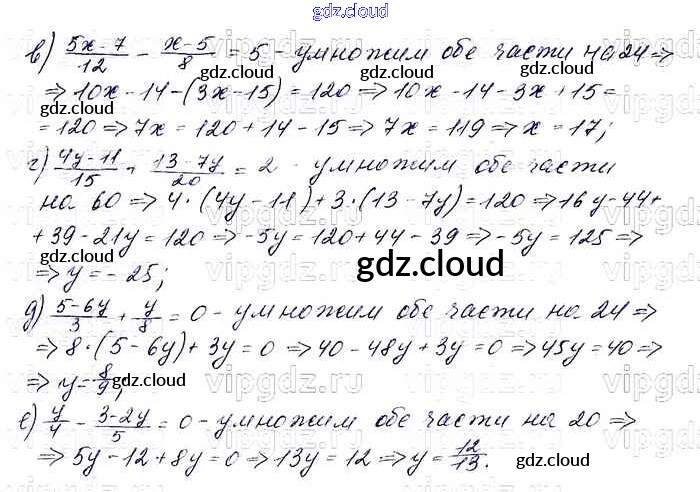 gdz.cloud
в) (5x-7)/12 - (x-5)/8 = 5 - умножим обе части на 24 ⇒
⇒ 10x - 14 - (3x - 15) = 120 ⇒ 10x - 14 - 3x + 15 =
= 120 ⇒ 7x = 120 + 14 - 15 ⇒ 7x = 119 ⇒ x = 17;
г) (4y-11)/15 + (13-7y)/20 = 2 - умножим обе части
на 60 ⇒ 4·(4y - 11) + 3·(13 - 7y) = 120 ⇒ 16y - 44 +
+ 39 - 21y = 120 ⇒ -5y = 120 + 44 - 39 ⇒ -5y = 125 ⇒
⇒ y = -25;
gdz.cloud
д) (5-6y)/3 + y/8 = 0 - умножим обе части на 24 ⇒
⇒ 8·(5 - 6y) + 3y = 0 ⇒ 40 - 48y + 3y = 0 ⇒ 45y = 40 ⇒
⇒ y = 8/9;
е) y/4 - (3-2y)/5 = 0 - умножим обе части на 20 ⇒
⇒ 5y - 12 + 8y = 0 ⇒ 13y = 12 ⇒ y = 12/13.